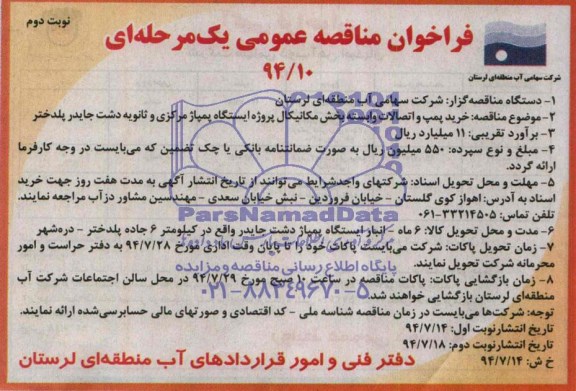 نوبت دوم
فراخوان مناقصه عمومی یک‌مرحله‌ای
۹۴/۱۰
شرکت سهامی آب منطقه‌ای لرستان
۱- دستگاه مناقصه‌گزار: شرکت سهامی آب منطقه‌ای لرستان
۲-موضوع مناقصه: خرید پمپ و اتصالات وابسته بخش مکانیکال پروژه ایستگاه پمپاژ مرکزی و ثانویه دشت جایدر پلدختر
۳- برآورد تقریبی: ۱۱ میلیارد ریال
۴- مبلغ و نوع سپرده: ۵۵۰ میلیون ریال به صورت ضمانتنامه بانکی یا چک تضمین که می‌بایست در وجه کارفرما
ارائه گردد.
۵- مهلت و محل تحویل اسناد: شرکتهای واجدشرایط می‌توانند از تاریخ انتشار آگهی به مدت هفت روز جهت خرید
اسناد به آدرس: اهواز کوی گلستان - خیابان فروردین - نبش خیابان سعدی - مهندسین مشاور دزآب مراجعه نمایند.
تلفن تماس: ۳۳۲۱۴۵۰۵-۰۶۱
۶- مدت و محل تحویل کالا: ۶ ماه - انبار ایستگاه پمپاژ دشت جایدر واقع در کیلومتر ۶ جاده پلدختر - دره‌شهر
۷- زمان تحویل پاکات: شرکت می‌بایست پاکات خود را تا پایان وقت اداری مورخ ۹۴/۷/۲۸ به دفتر حراست و امور
محرمانه شرکت تحویل نمایند.
۸- زمان بازگشایی پاکات: پاکات مناقصه در ساعت ۱۰ صبح مورخ ۹۴/۷/۲۹ در محل سالن اجتماعات شرکت آب
منطقه‌ای لرستان بازگشایی خواهند شد.
توجه: شرکت‌ها می‌بایست در زمان مناقصه شناسه ملی - کد اقتصادی و صورتهای مالی حسابرسی‌شده ارائه نمایند.
تاریخ انتشارنوبت اول: ۹۴/۷/۱۴
تاریخ انتشارنوبت دوم: ۹۴/۷/۱۸
خ ش: ۹۴/۷/۱۴
دفتر فنی و امور قراردادهای آب منطقه‌ای لرستان
ParsNamadData
پایگاه اطلاع رسانی مناقصه و مزایده
۰۲۱-۸۸۳۴۹۶۷۰-۵